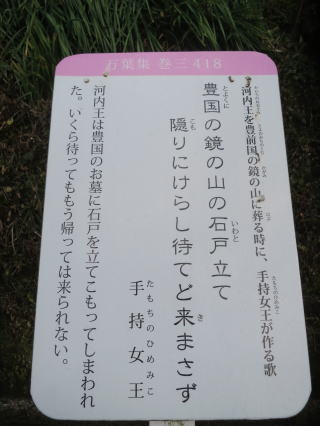 万葉集 巻三 418
河内王を豊前国の鏡の山に葬る時に、手持女王が作る歌
豊国の鏡の山の石戸立て
隠りにけらし待てど来まさず
手持女王
河内王は豊国のお墓に石戸を立てこもってしまわれ
た。いくら待ってももう帰っては来られない。